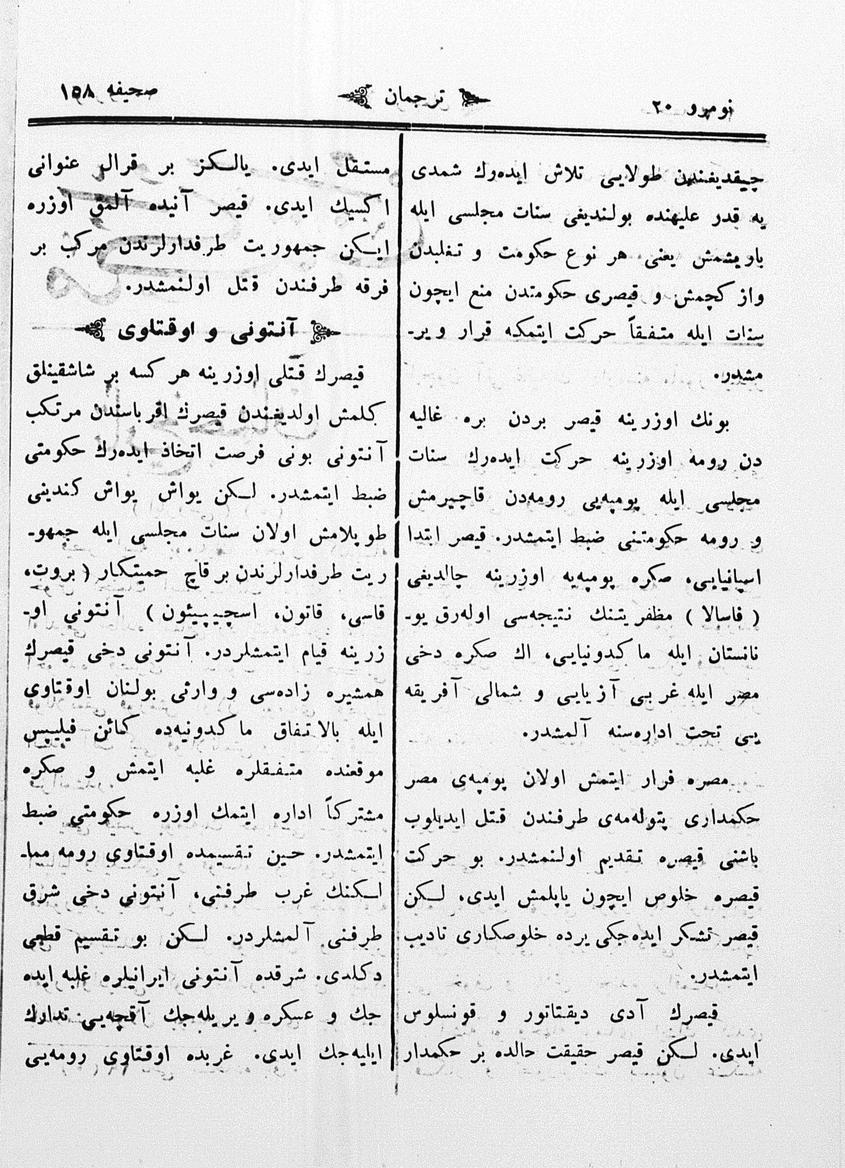 نومرو ٢٠
ترجمان
صحیفه ١٥٨
چیقدیغندن طولایی تلاش ایده‌رك شمدی
یه قدر علیهنده بولندیغی سنات مجلسی ایله
باریشمش یعنی هر نوع حکومت و تغلبدن
واز کچمش و قیصری حکومتدن منع ایچون
سنات ایله متفقاً حرکت ایتمکه قرار ویر-
مشدر.
بونك اوزرینه قیصر بردن بره غالیه
دن رومه اوزرینه حرکت ایده‌رك سنات
مجلسی ایله پومپه‌یی رومه‌دن قاچیرمش
و رومه حکومتنی ضبط ایتمشدر. قیصر ابتدا
اسپانیایی، صکره پومپه‌یه اوزرینه چالدیغی
( فاسالا ) مظفریتنك نتیجه‌سی اوله‌رق یو-
نانستان ایله ماکدونیایی، اك صکره دخی
مصر ایله غربی آزیایی و شمالی آفریقه
یی تحت اداره‌سنه آلمشدر.
مصره فرار ایتمش اولان پومپه‌ی مصر
حکمداری پتوله‌مه‌ی طرفندن قتل ایدیلوب
باشنی قیصره تقدیم اولنمشدر. بو حرکت
قیصره خلوص ایچون یاپلمش ایدی. لکن
قیصر تشکر ایده‌جکی یرده خلوصکاری تادیب
ایتمشدر.
قیصرك آدی دیقتاتور و قونسلوس
ایدی. لکن قیصر حقیقت حالده بر حکمدار
مستقل ایدی. یالکز بر قرال عنوانی
اکسیك ایدی. قیصر آنیده آلمق اوزره
ایکن جمهوریت طرفدارلرندن مرکب بر
فرقه طرفندن قتل اولنمشدر.
آنتونی و اوقتاوی
قیصرك قتلی اوزرینه هر کسه بر شاشقینلق
کلمش اولدیغندن قیصرك اقرباسندن مرتکب
آنتونی بونی فرصت اتخاذ ایده‌رك حکومتی
ضبط ایتمشدر. لکن یواش یواش کندینی
طوپلامش اولان سنات مجلسی ایله جمهو-
ریت طرفدارلرندن بر قاچ حمیتکار ( بروت،
قاسی، قاتون، اسچیپیئون ) آنتونی او-
زرینه قیام ایتمشلردر. آنتونی دخی قیصرك
همشیره زاده‌سی و وارثی بولنان اوقتاوی
ایله بالاتفاق ماکدونیه‌ده کائن فیلیپس
موقعنده متفقلره غلبه ایتمش و صکره
مشترکاً اداره ایتمك اوزره حکومتی ضبط
ایتمشدر. حین تقسیمده اوقتاوی رومه مما-
لکنك غرب طرفنی، آنتونی دخی شرق
طرفنی آلمشلردر. لکن بو تقسیم قطعی
دکلدی. شرقده آنتونی ایرانیلره غلبه ایده
جك و عسکره ویریله‌جك آقچه‌یی تدارك
ایلیه‌جك ایدی. غربده اوقتاوی رومه‌یی